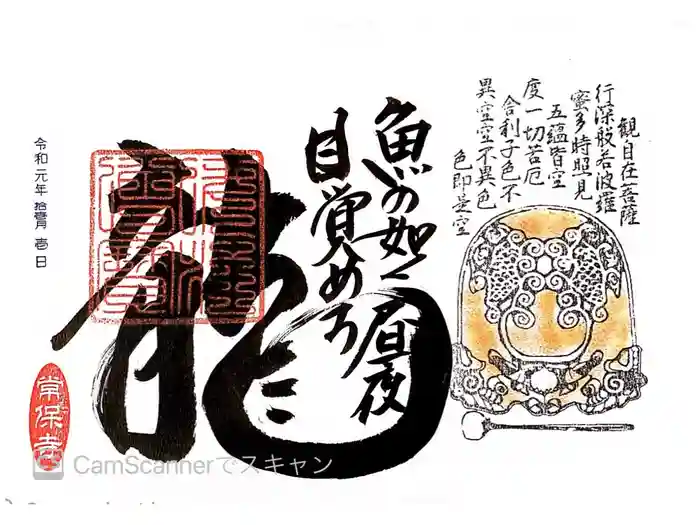 観自在菩薩
行深般若波羅
蜜多時照見
五蘊皆空
度一切苦厄
舎利子色不
異空空不異色
色即是空
魚の如く昼夜
目覚めろ
龍
令和元年 拾壹月 壱日
CamScannerでスキャン